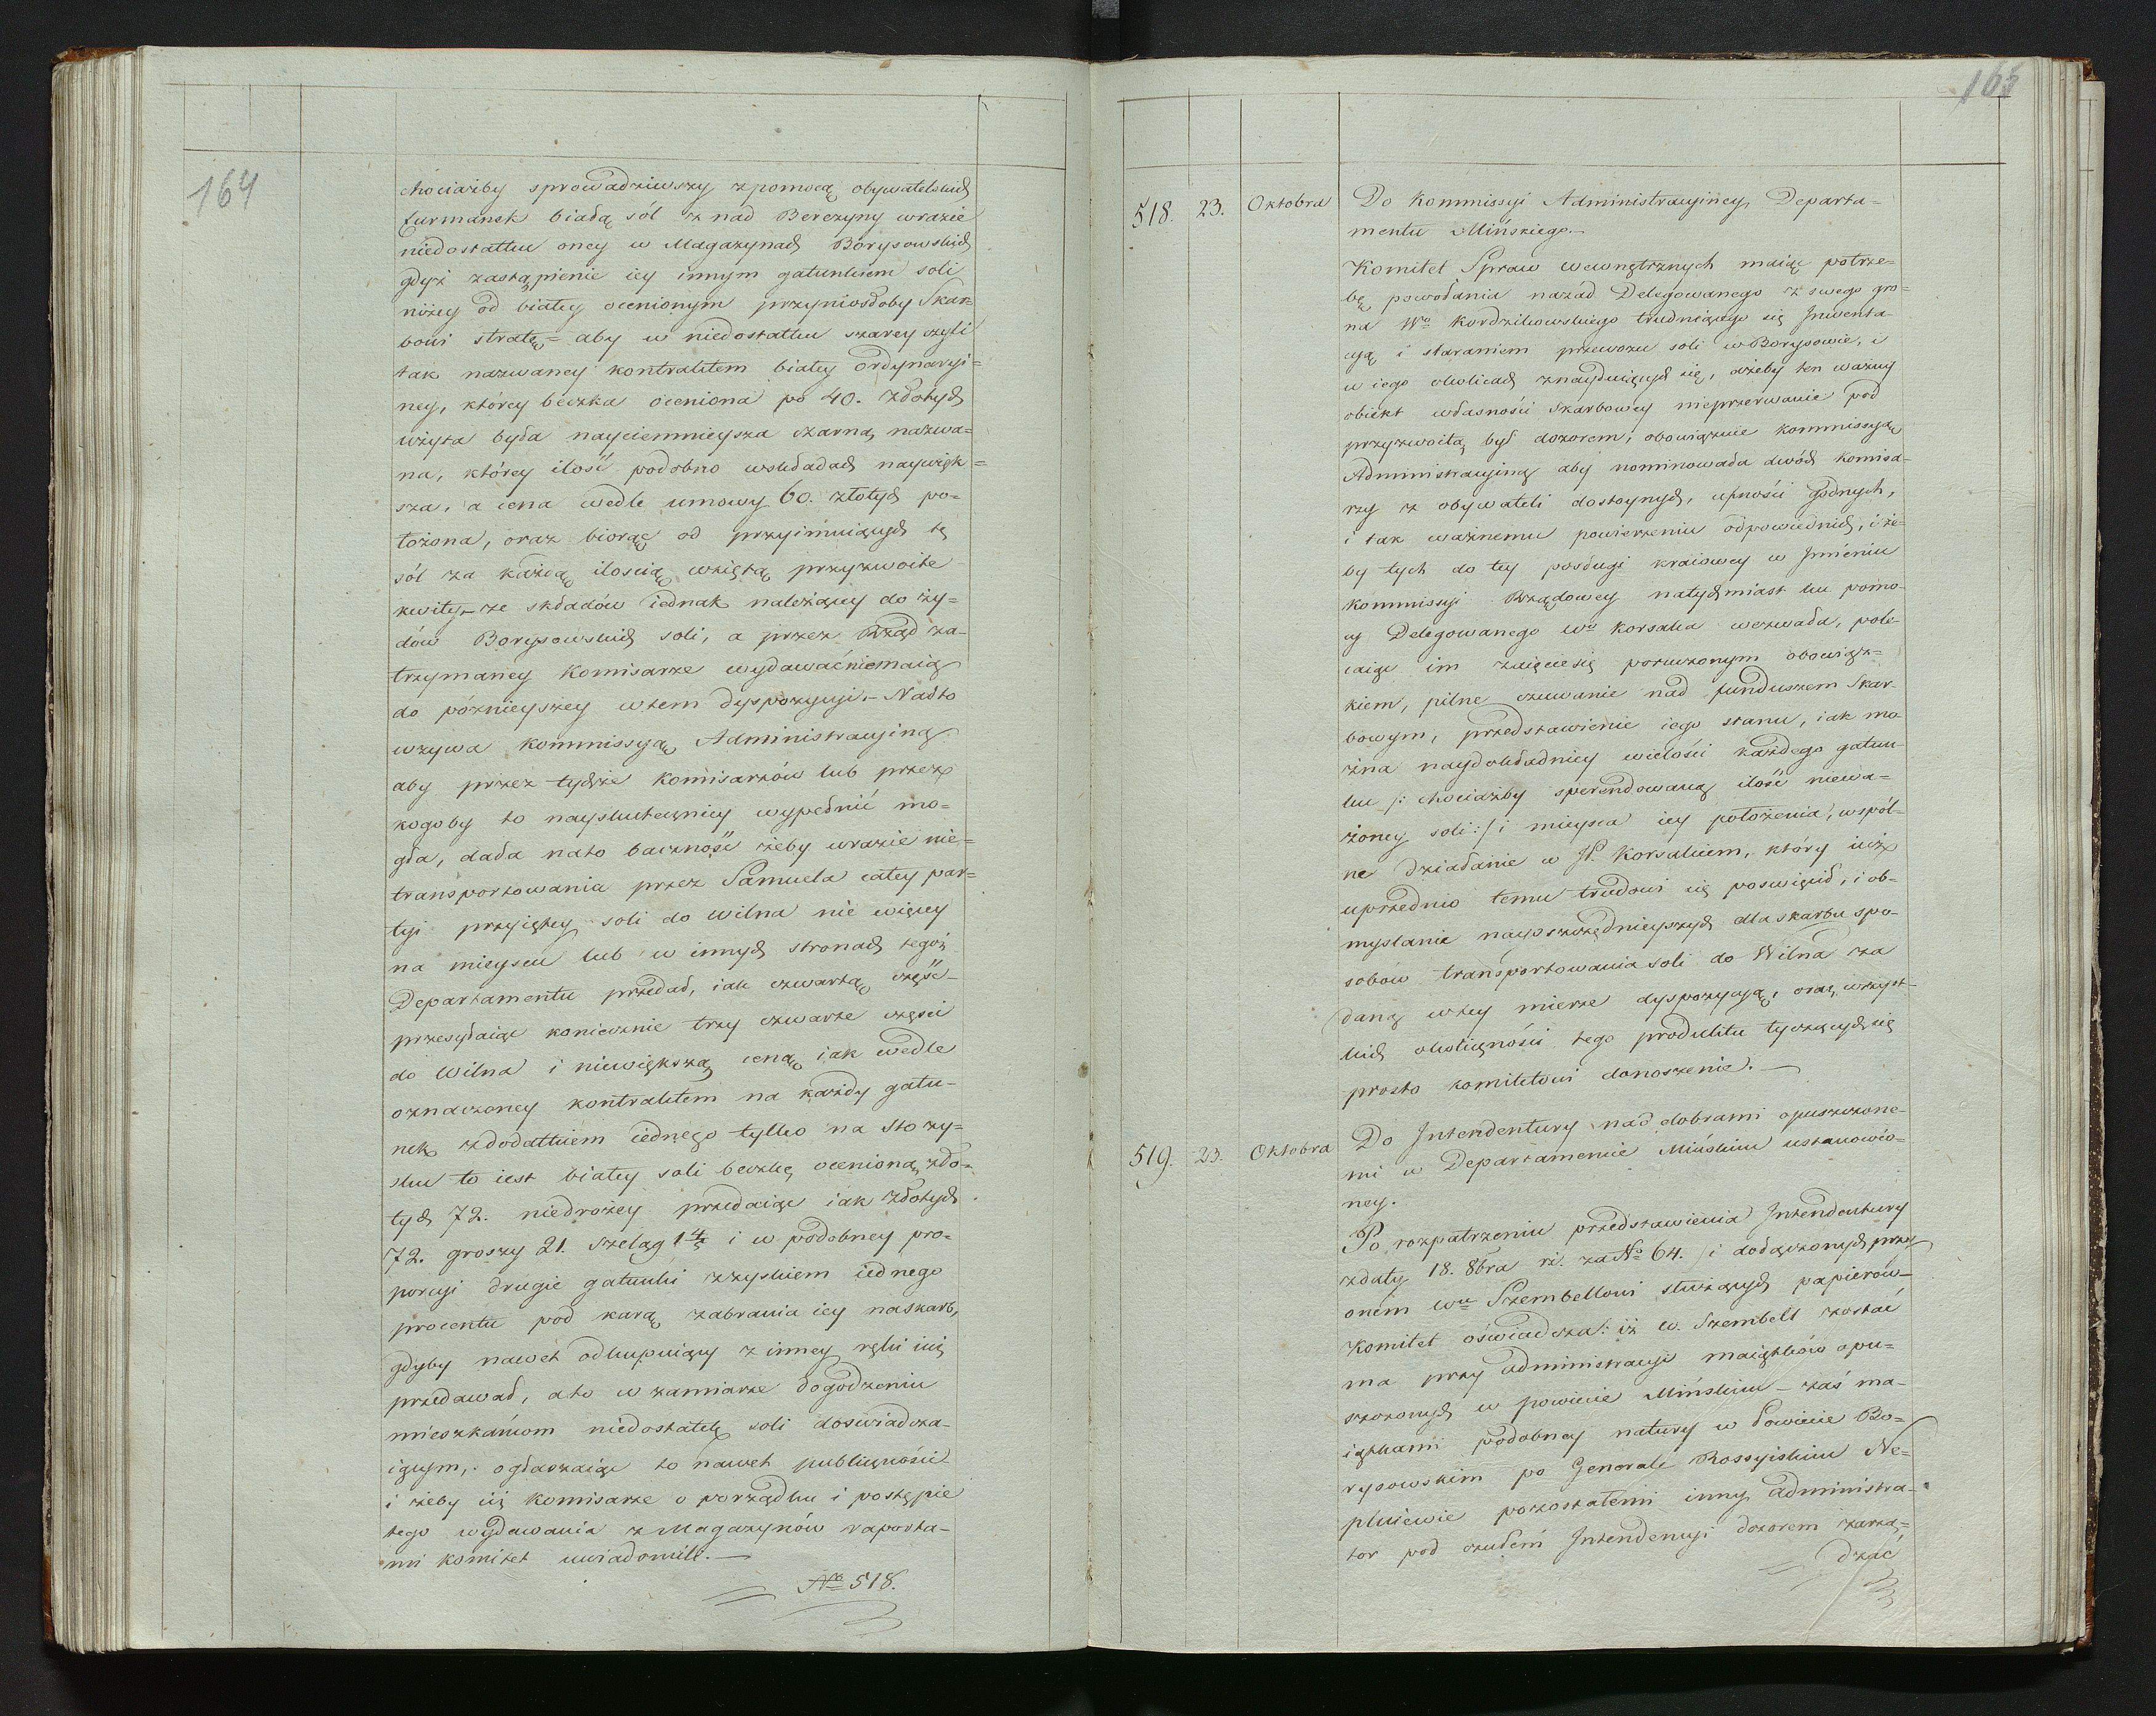 164
chociażby sprowadziwszy z pomocą obywatelskich
furmanek białą sól z nad Berezyny wrazie
niedostatku oney w Magazynach Borysowskich
gdyż zastąpienie iey innym gatunkiem soli
niżey od białey ocenionym przyniosłoby Skar=
bowi stratę = aby w niedostatku szarey czyli
tak nazwaney kontraktem białey ordynaryi=
ney, którey beczka oceniona po 40. złotych
użyta była nayciemnieysza czarną nazwa=
na, którey ilość podobno wskładach naywięk=
sza, a cena wedle umowy 60. złotych po=
łożona, oraz biorąc od przyimuiących tę
sól za każdą ilością wziętą przyzwoite
kwity – ze składów iednak należącey do ży=
dów Borysowskich soli, a przez Rząd za-
trzymaney Komisarze wydawać niemaią
do póznieyszey wtem dyspozycyi. – Nadto
wzywa Kommissyą Administracyiną
aby przez tychże Komisarzów lub przez
kogoby to nayskuteczniey wypełnić mo=
gła, dała nato baczność żeby wrazie nie=
transportowania przez Samuela całey par=
tyi przyiętey soli do Wilna nie więcey
na mieyscu lub w innych stronach tegoż
Departamentu przedał, iak czwartą część –
przesyłaiąc koniecznie trzy czwarte części
do Wilna i niewiększą ceną iak wedle
oznaczoney kontraktem na każdy gatu-
nek zdodatkiem iednego tylko na sto zy=
sku to iest białey soli beczkę ocenioną zło-
tych 72. niedrożey przedaiąc iak złotych
72. groszy 21. szeląg 1 4/5 i w podobney pro-
porcyi drugie gatunki zzyskiem iednego
procentu pod karą zabrania iey naskarb,
gdyby nawet odkupuiący z inney ręki ią
przedawał, a to w zamiarze dogodzenia
mieszkańcom niedostatek soli doswiadcza-
iącym, ogłaszaiąc to nawet publiczności
i żeby iż Komisarze o porządku i postępie
tego wydawania z Magazynów raporta-
mi komitet uwiadomili. –
No 518.
165
518. 23. Oktobra Do Kommissyi Administracyiney Departa=
mentu Mińskiego. –
Komitet Spraw wewnętrznych maiąc potrze-
bę powołania nazad Delegowanego z swego gro-
na Wo Kordzikowskiego trudniącego się Inwenta-
cyą i staraniem przewozu soli w Borysowie, i
w iego okolicach znayduiących się, ażeby ten ważny
obiekt własności Skarbowey nieprzerwanie pod
przyzwoitą był dozorem; obowiązuie kommissyą
Administracyiną aby nominowała dwóch komisa-
rzy z obywateli dostoynych, ufności godnych,
i tak ważnemu powierzeniu odpowiednich, i że-
by tych do tey posługi kraiowey w Imieniu
kommissyi Rządowey natychmiast ku pomo-
cy Delegowanego Wo Korsaka wezwała, pole-
caiąc im zaięcie się poruczonym obowiąz=
kiem, pilne czuwanie nad funduszem Skar-
bowym, przedstawienie iego stanu, iak mo-
żna naydokładniey wielości każdego gatun-
ku /: chociażby sperendowaną ilość niewa=
żoney soli :/ i mieysca iey położenia, wspól-
ne działanie w JP. Korsakiem, który iuż
uprzednio temu trudowi się poswięcił, i ob-
myslanie nayoszczędnieyszych dla skarbu spo-
sobów transportowania soli do Wilna za
daną wtey mierze dyspozycyą, oraz wszyst-
kich okoliczności tego produktu tyczących się
prosto komitetowi donoszenie. –
519. 23. Oktobra Do Intendentury nad dobrami opuszczone-
mi w Departamencie Mińskim ustanowio-
ney.
Po rozpatrzeniu przedstawienia Intendentury
zdaty 18. 8bra r. za No 64. i dołączonych przy
onem Wu Szembellowi służących papierów –
Komitet oświadcza: iż W. Szembell zostać
ma przy administracyi maiątków opu=
szczonych w powiecie Mińskim – zaś ma-
iątkami podobney natury w Powiecie Bo=
rysowskim po Generale Rossyiskim Ne-
pluiewie pozostałemi inny administra-
tor pod czułem Intendencyi dozorem zarzą=
dzać